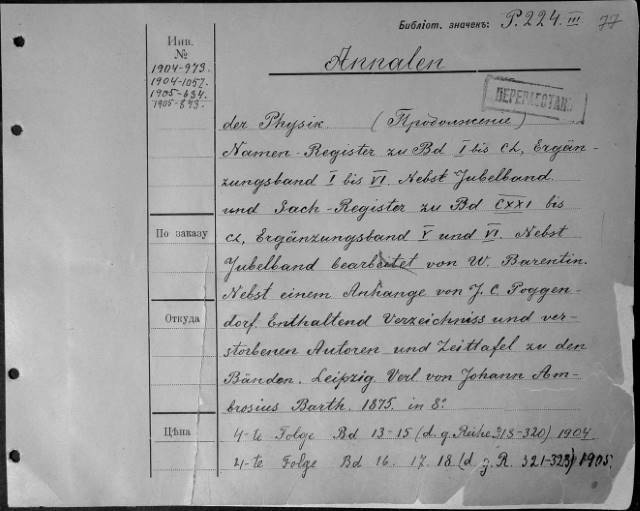 Библіот. значекъ: P. 224. III 77
Инв.
№
1904-973.
1904-1057.
1905-634.
1905-873.
Annalen
ПЕРЕРАБОТАНО
der Physik. (Продолженіе)
Namen-Register zu Bd I bis CL, Ergän-
zungsband I bis VI. Nebst Jubelband
und Sach-Register zu Bd CXXI bis
По заказу
CL, Ergänzungsband V und VI. Nebst
Jubelband bearbeitet von W. Barentin.
Nebst einem Anhange von J. C. Poggen-
Откуда
dorf. Enthaltend Verzeichniss und ver-
storbenen Autoren und Zeittafel zu den
Bänden. Leipzig. Verl. von Johann Am-
brosius Barth. 1875. in 8º
Цѣна
4-te Folge Bd 13-15 (d. g. Reihe 318-320) 1904.
4-te Folge Bd 16. 17. 18. (d. g. R. 321-323) 1905.